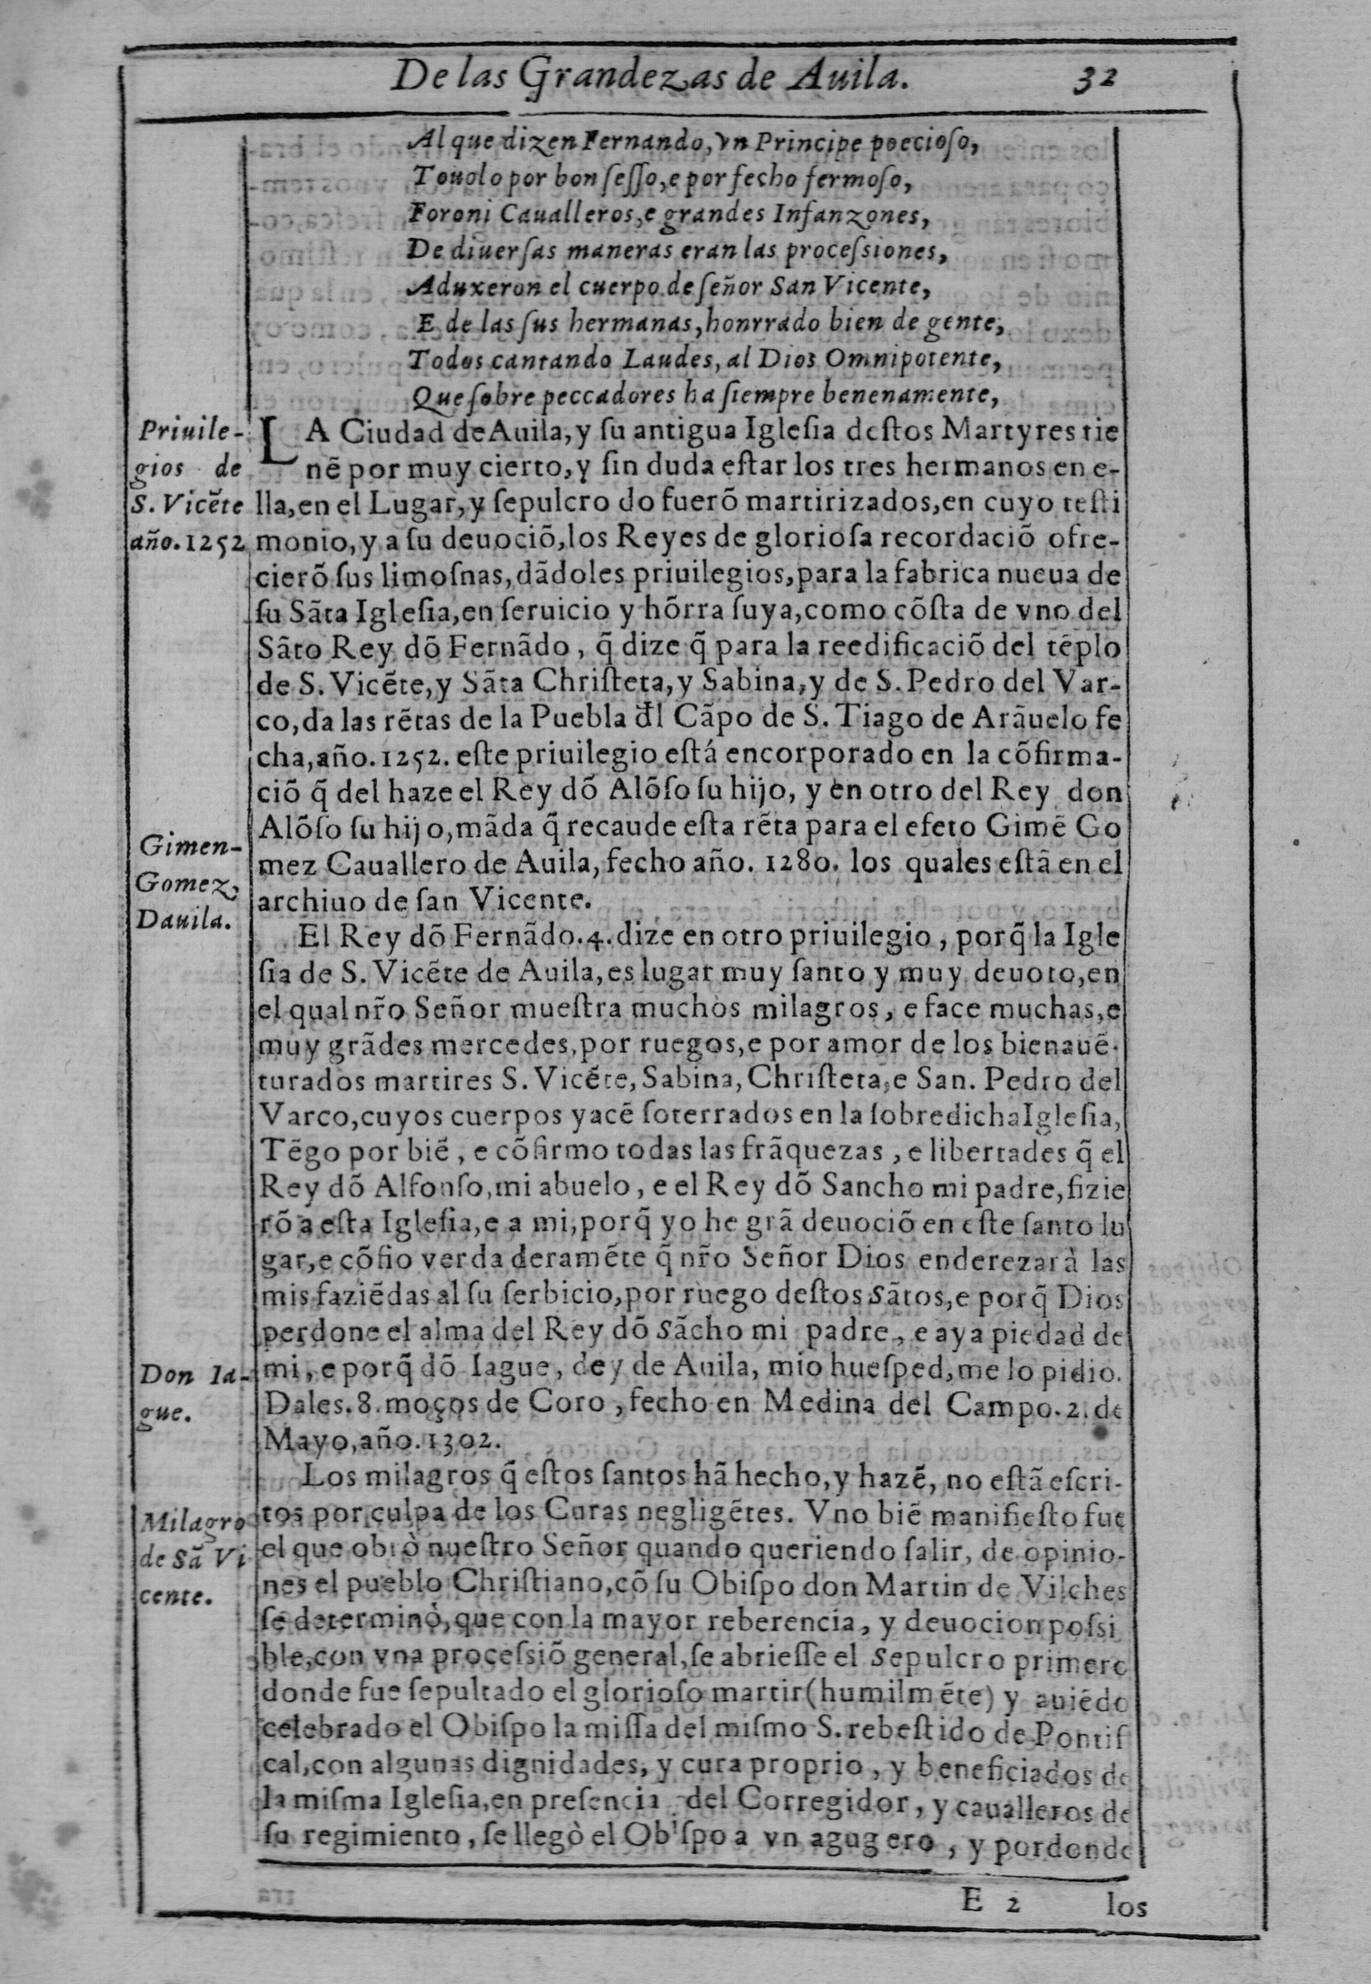 De las Grandezas de Auila. 32
Al que dizen Fernando, vn Principe poecioſo,
Touolo por bon ſeſſo, e por fecho fermoſo,
Foroni Caualleros, e grandes Infanzones,
De diuerſas maneras eran las proceſsiones,
Aduxeron el cuerpo de ſeñor San Vicente,
E de las ſus hermanas, honrrado bien de gente,
Todos cantando Laudes, al Dios Omnipotente,
Que ſobre peccadores ha ſiempre benenamente,
Priuile-
gios de
S. Vicẽte
año. 1252
LA Ciudad de Auila, y ſu antigua Igleſia deſtos Martyres tie
nẽ por muy cierto, y ſin duda eſtar los tres hermanos en e-
lla, en el Lugar, y ſepulcro do fuerõ martirizados, en cuyo teſti
monio, y a ſu deuociõ, los Reyes de glorioſa recordaciõ ofre-
cierõ ſus limoſnas, dãdoles priuilegios, para la fabrica nueua de
ſu Sãta Igleſia, en ſeruicio y hõrra ſuya, como cõſta de vno del
Sãto Rey dõ Fernãdo, q̃ dize q̃ para la reedificaciõ del tẽplo
de S. Vicẽte, y Sãta Chriſteta, y Sabina, y de S. Pedro del Var-
co, da las rẽtas de la Puebla đl Cãpo de S. Tiago de Arãuelo fe
cha, año. 1252. eſte priuilegio eſtá encorporado en la cõfirma-
ciõ q̃ del haze el Rey dõ Alõſo ſu hijo, y en otro del Rey don
Alõſo ſu hijo, mãda q̃ recaude eſta rẽta para el efeto Gimẽ Go
mez Cauallero de Auila, fecho año. 1280. los quales eſtã en el
archiuo de ſan Vicente.
Gimen-
Gomez,
Dauila.
El Rey dõ Fernãdo. 4. dize en otro priuilegio, porq̃ la Igle
ſia de S. Vicẽte de Auila, es lugar muy ſanto y muy deuoto, en
el qual nr̃o Señor mueſtra muchos milagros, e face muchas, e
muy grãdes mercedes, por ruegos, e por amor de los bienauẽ-
turados martires S. Vicẽte, Sabina, Chriſteta, e San. Pedro del
Varco, cuyos cuerpos yacẽ ſoterrados en la ſobredicha Igleſia,
Tẽgo por biẽ, e cõfirmo todas las frãquezas, e libertades q̃ el
Rey dõ Alfonſo, mi abuelo, e el Rey dõ Sancho mi padre, fizie
rõ a eſta Igleſia, e a mi, porq̃ yo he grã deuociõ en eſte ſanto lu
gar, e cõfio verda deramẽte q̃ nr̃o Señor Dios enderezarà las
mis faziẽdas al ſu ſerbicio, por ruego deſtos Sãtos, e porq̃ Dios
perdone el alma del Rey dõ Sãcho mi padre, e aya piedad de
mi, e porq̃ dõ Iague, dey de Auila, mio hueſped, me lo pidio.
Dales. 8. moços de Coro, fecho en Medina del Campo. 2. de
Mayo, año. 1302.
Don Ia-
gue.
Los milagros q̃ eſtos ſantos hã hecho, y hazẽ, no eſtã eſcri-
tos por culpa de los Curas negligẽtes. Vno biẽ manifieſto fue
el que obrò nueſtro Señor quando queriendo ſalir, de opinio-
nes el pueblo Chriſtiano, cõ ſu Obiſpo don Martin de Vilches
ſe determinò, que con la mayor reberencia, y deuocion poſsi
ble, con vna proceſsiõ general, ſe abrieſſe el Sepulcro primero
donde fue ſepultado el glorioſo martir (humilmẽte) y auiẽdo
celebrado el Obiſpo la miſſa del miſmo S. rebeſtido de Pontif
cal, con algunas dignidades, y cura proprio, y beneficiados de
la miſma Igleſia, en preſencia del Corregidor, y caualleros de
ſu regimiento, ſe llegò el Obiſpo a vn agugero, y pordonde
Milagro
de Sã Vi
cente.
E 2 los